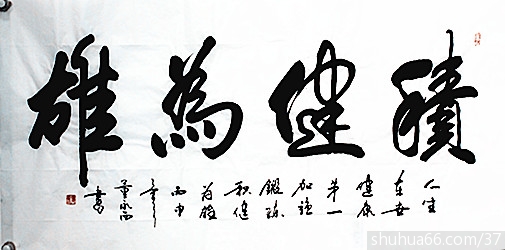 積健為雄
人生
在世
健康
第一
加强
鍛炼
积健
为雄
丙申
年
書
shuhua66.com/37